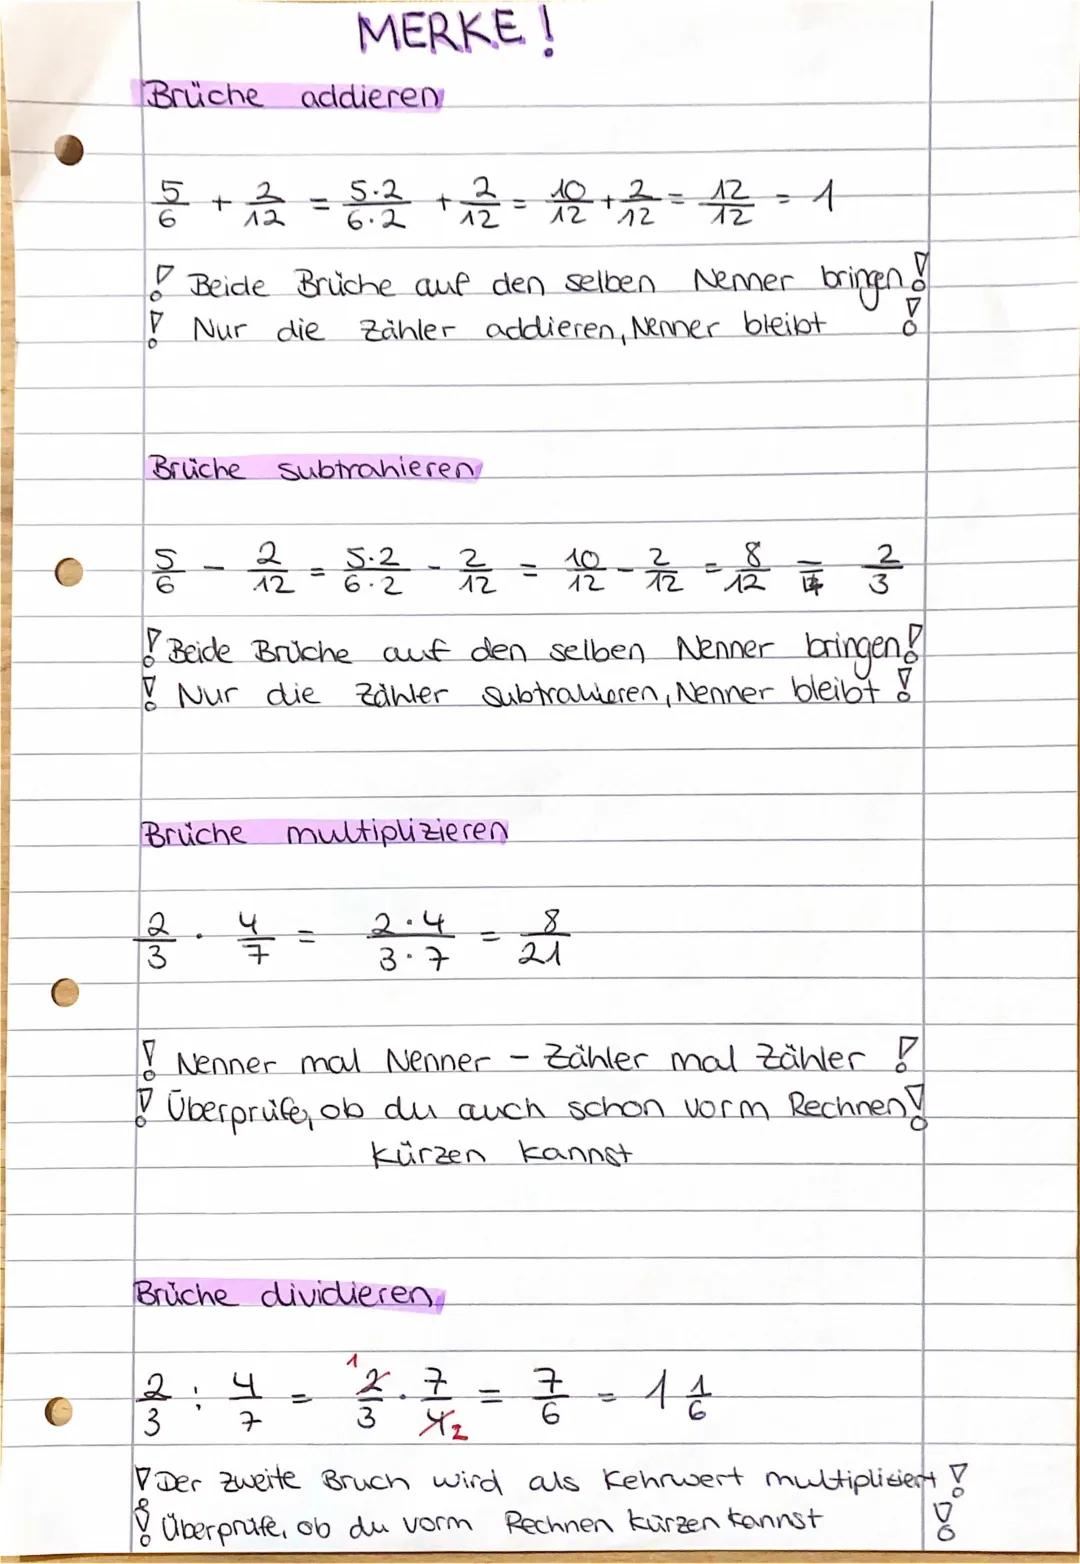 MERKE!
Brüche addieren
5/6 + 2/12 = 5·2/6·2 + 2/12 = 10/12 + 2/12 = 12/12 = 1
! Beide Brüche auf den selben Nenner bringen!
! Nur die Zähler addieren, Nenner bleibt !
Brüche subtrahieren
5/6 - 2/12 = 5·2/6·2 - 2/12 = 10/12 - 2/12 = 8/12 = 2/3
! Beide Brüche auf den selben Nenner bringen!
! Nur die Zähler subtrahieren, Nenner bleibt !
Brüche multiplizieren
2/3 · 4/7 = 2·4/3·7 = 8/21
! Nenner mal Nenner - Zähler mal Zähler !
! Überprüfe, ob du auch schon vorm Rechnen!
kürzen kannst
Brüche dividieren
2/3 : 4/7 = 1 2/3 · 7/4 2 = 7/6 = 1 1/6
! Der zweite Bruch wird als Kehrwert multiplisiert !
! Überprüfe, ob du vorm Rechnen kürzen kannst !